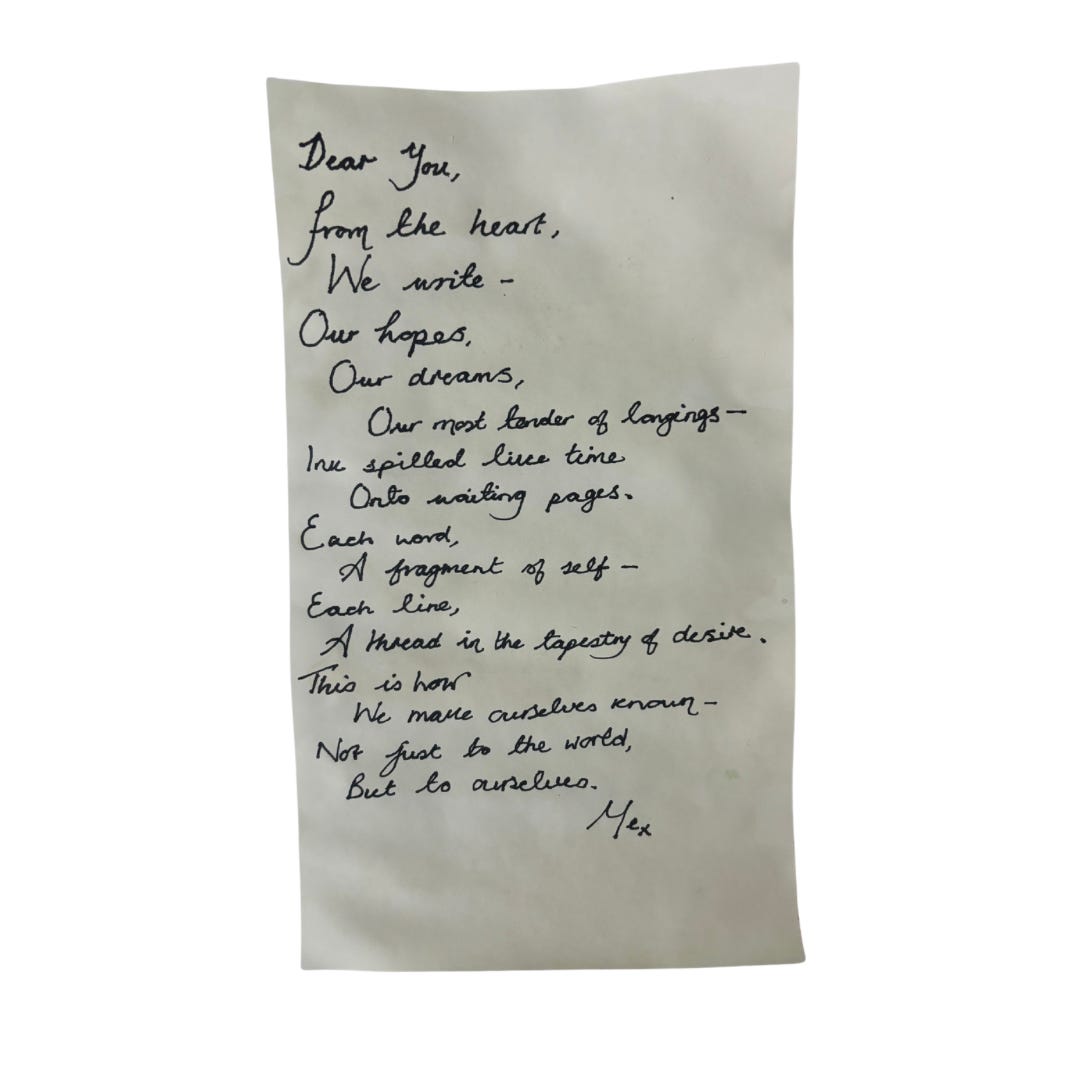 Dear You,
from the heart,
We write –
Our hopes,
Our dreams,
Our most tender of longings –
Ink spilled like time
Onto waiting pages.
Each word,
A fragment of self –
Each line,
A thread in the tapestry of desire.
This is how
We make ourselves known –
Not just to the world,
But to ourselves.
Me x